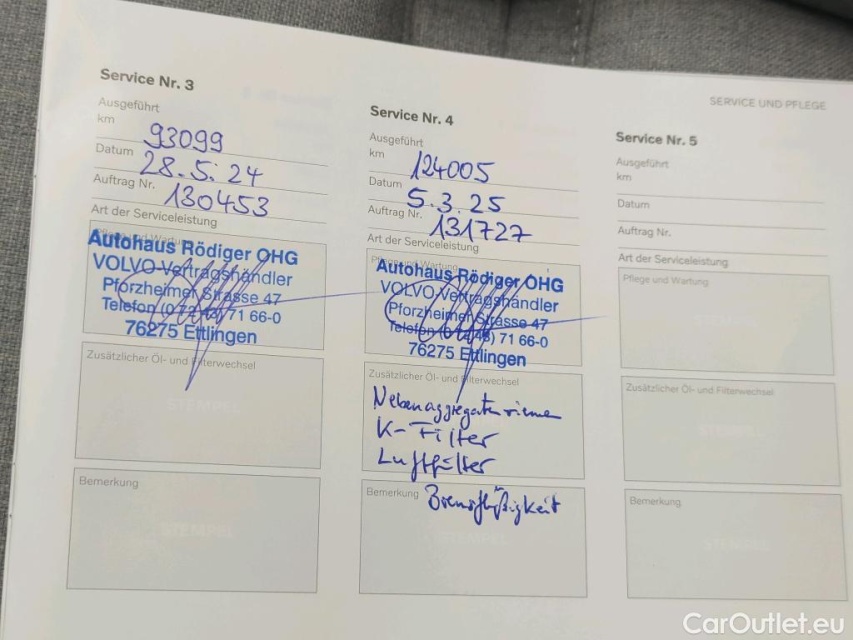 SERVICE UND PFLEGE
Service Nr. 3
Ausgeführt
km 93099
Datum 28.5.24
Auftrag Nr. 130453
Art der Serviceleistung
Pflege und Wartung
Autohaus Rödiger OHG
VOLVO-Vertragshändler
Pforzheimer Strasse 47
Telefon (0 72 43) 71 66-0
76275 Ettlingen
Zusätzlicher Öl- und Filterwechsel
Bemerkung
STEMPEL
Service Nr. 4
Ausgeführt
km 124005
Datum 5.3.25
Auftrag Nr. 131727
Art der Serviceleistung
Pflege und Wartung
Autohaus Rödiger OHG
VOLVO-Vertragshändler
Pforzheimer Strasse 47
Telefon (0 72 43) 71 66-0
76275 Ettlingen
Zusätzlicher Öl- und Filterwechsel
Nebenaggregatenrieme
K-Filter
Luftfilter
Bemerkung Bremsflüßigkeit
STEMPEL
Service Nr. 5
Ausgeführt
km
Datum
Auftrag Nr.
Art der Serviceleistung
Pflege und Wartung
Zusätzlicher Öl- und Filterwechsel
Bemerkung
STEMPEL
CarOutlet.eu